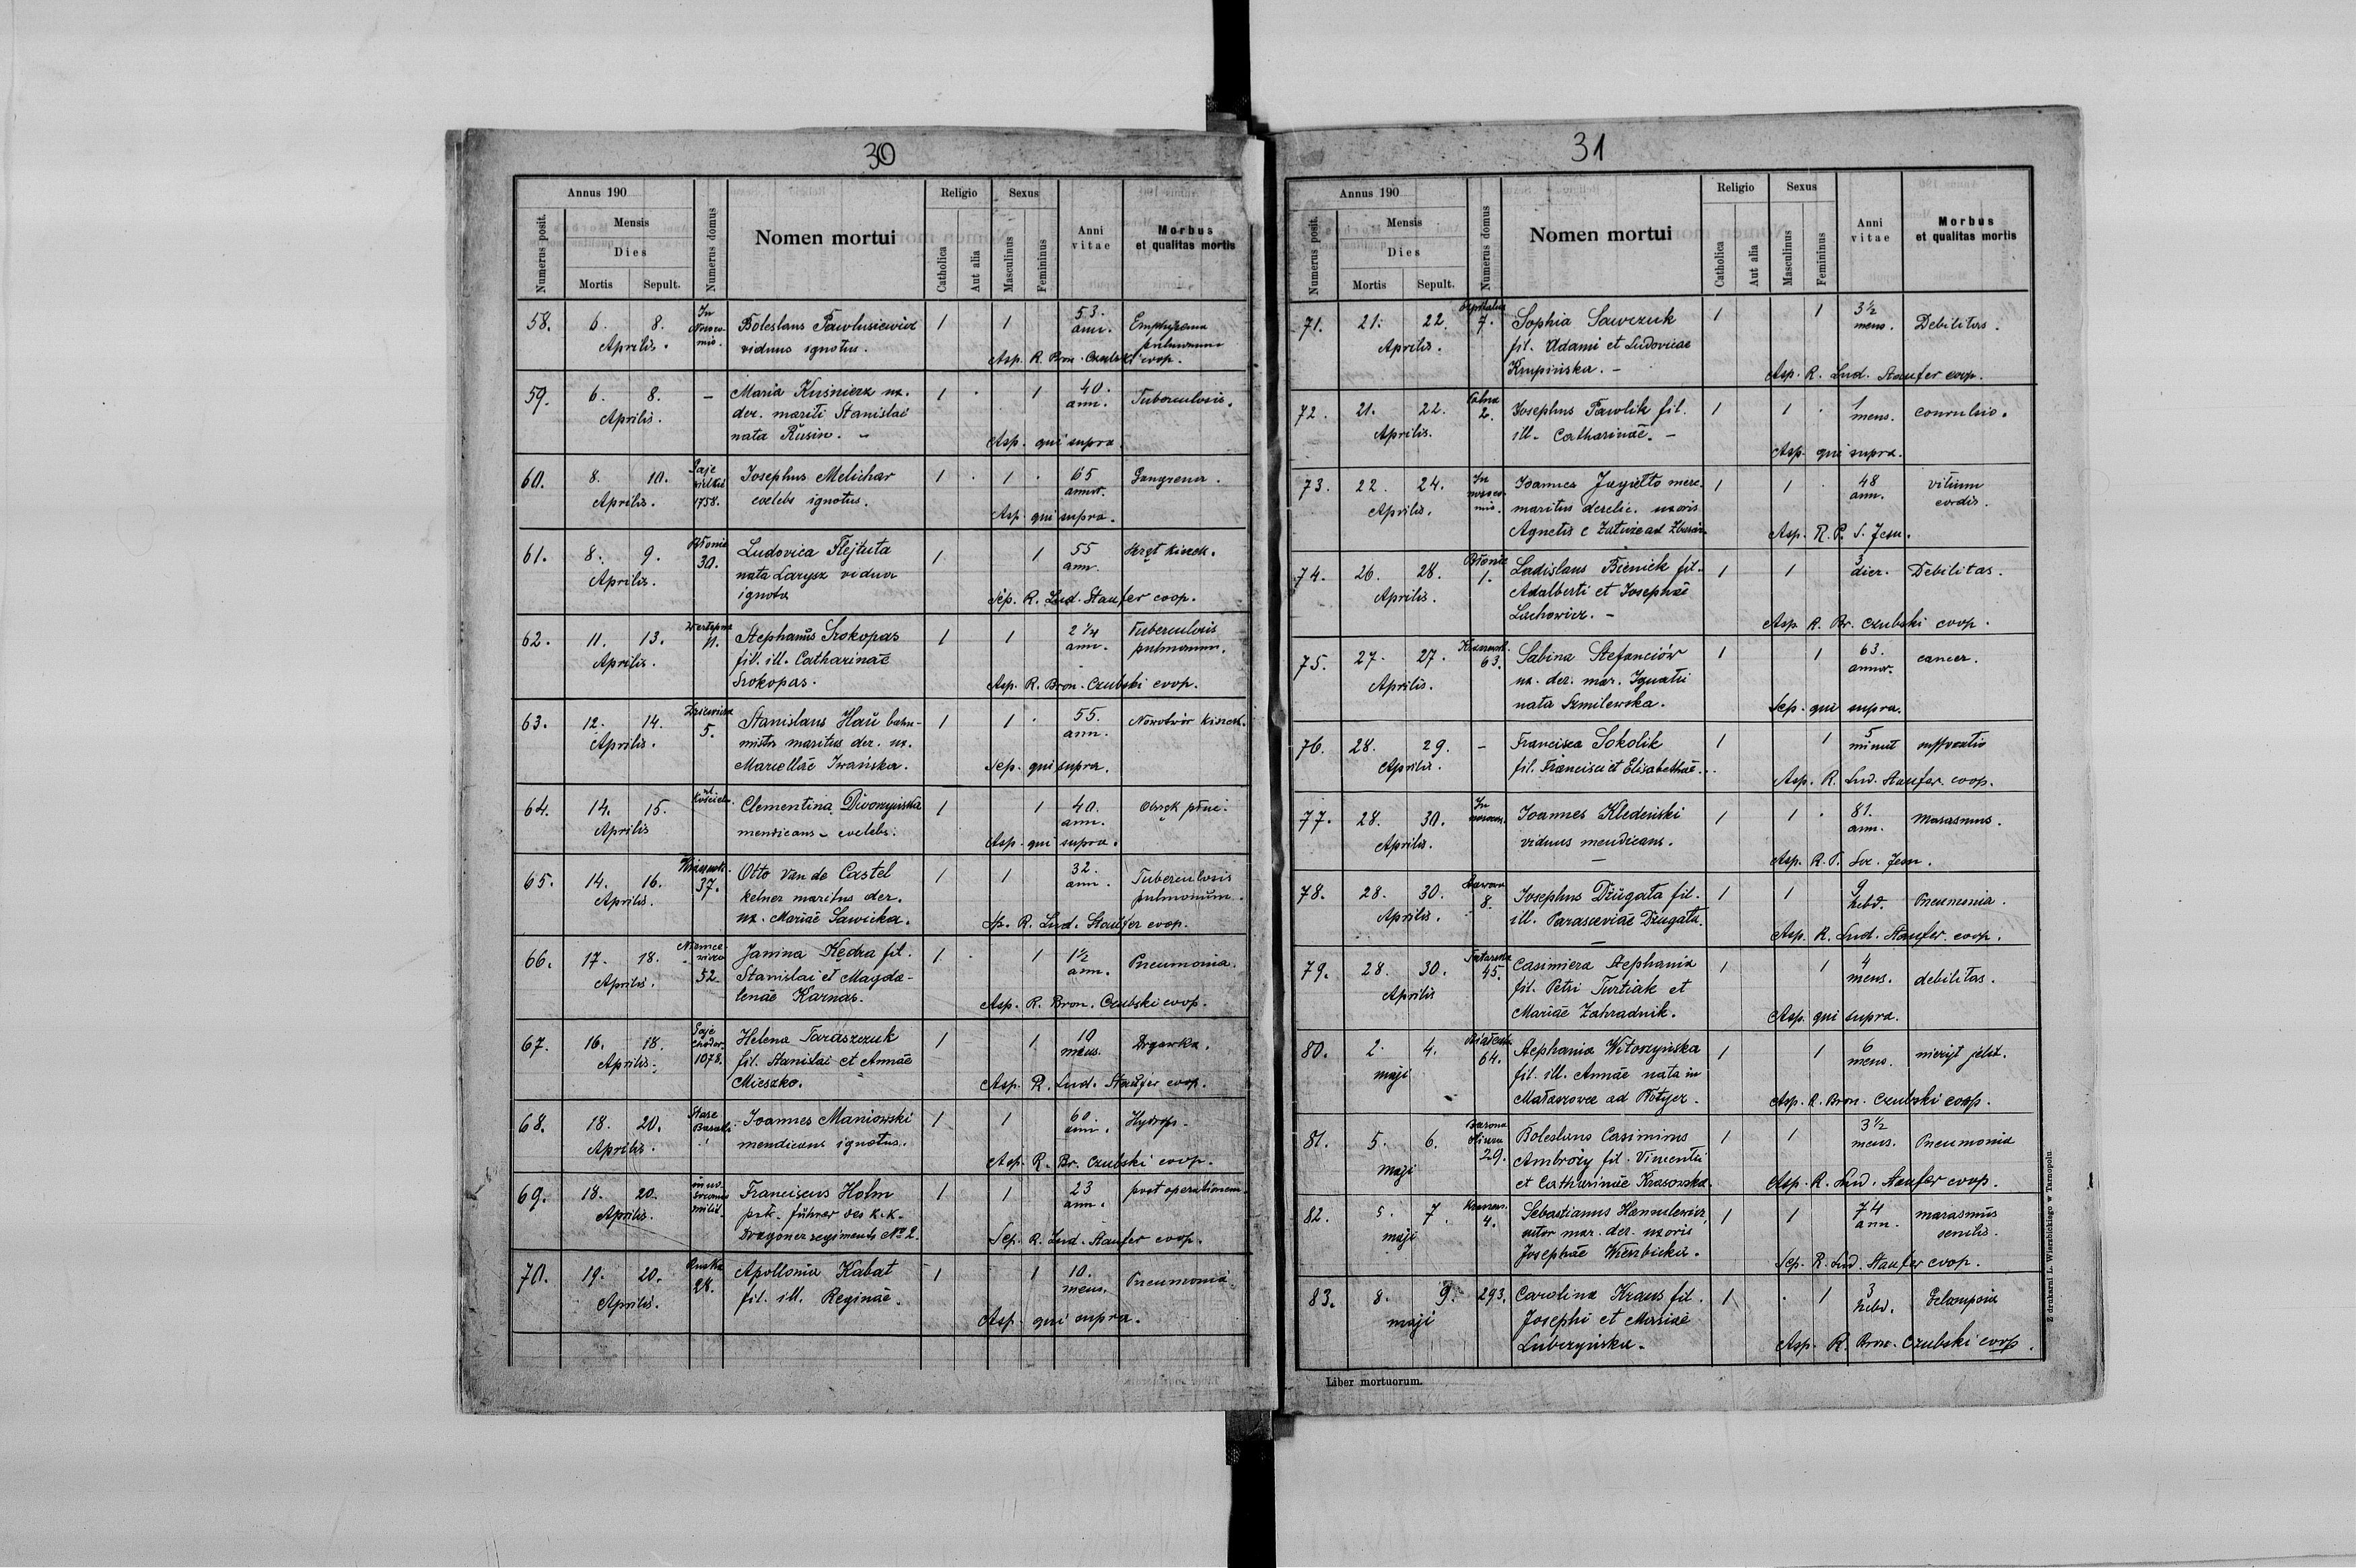 30
Annus 190
Numerus posit.
Mensis
Dies
Mortis Sepult.
Numerus domus
Nomen mortui
Religio
Catholica
Aut alia
Sexus
Masculinus
Femininus
Anni vitae
Morbus et qualitas mortis
58. 6. 8. Aprilis.
In Nosoco-mio.
Boleslaus Pawlusiewicz
viduus ignotus.
1 1 53. ann. Emphyzema pulmonum
Asp. R. Bron. Czubski coop.
59. 6. 8. Aprilis. –
Maria Kuśnierz ux.
der. mariti Stanislai
nata Rusin. –
1 1 40. ann. Tuberculosis.
Asp. qui supra.
60. 8. 10. Aprilis.
Gaje 1758.
Josephus Melichar
caelebs ignotus.
1 1 65 annor. Gangrena.
Asp. qui supra.
61. 8. 9. Aprilis.
Błonie 30.
Ludovica Flejtuta
nata Larysz vidua
ignota
1 1 55 ann. Skręt kiszek.
Sep. R. Lud. Staufer coop.
62. 11. 13. Aprilis.
11.
Stephanus Prokopas
fil. ill. Catharinae
Prokopas.
1 1 2 1/4 ann. Tuberculosis pulmonum.
Asp. R. Bron. Czubski coop.
63. 12. 14. Aprilis.
5.
Stanislaus Hau bahn-
mistr maritus der. ux.
Marcellae Iwańska.
1 1 55. ann. Nowotwór kiszek.
Sep. qui supra.
64. 14. 15. Aprilis
Clementina
mendicans – caelebs.
1 1 40. ann. Obrzęk płuc.
Asp. qui supra.
65. 14. 16. Aprilis.
37.
Otto Van de Castel
kelner maritus der.
ux. Mariae Sawicka.
1 1 32. ann. Tuberculosis pulmonum.
R. Lud. Staufer coop.
66. 17. 18. Aprilis.
52.
Janina Kędra fil.
Stanislai et Magda-
lenae Karnas.
1 1 1 1/2 ann. Pneumonia.
Asp. R. Bron. Czubski coop.
67. 16. 18. Aprilis.
Gaje 1078.
Helena Taraszczuk
fil. Stanislai et Annae
Mieszko.
1 1 10 mens. Drgawka.
Asp. R. Lud. Staufer coop.
68. 18. 20. Aprilis.
Stare
Joannes Maniowski
mendicans ignotus.
1 1 60. ann. Hydrops.
Asp. R. Br. Czubski coop.
69. 18. 20. Aprilis.
milit.
Franciscus Holm
führer des k.k.
Dragoner regiments No 2.
1 1 23 ann. post operationem.
Sep. R. Lud. Staufer coop.
70. 19. 20. Aprilis.
Ruska 28.
Apollonia Kabat
fil. ill. Reginae.
1 1 10. mens. Pneumonia
Asp. qui supra.
31
Annus 190
Numerus posit.
Mensis
Dies
Mortis Sepult.
Numerus domus
Nomen mortui
Religio
Catholica
Aut alia
Sexus
Masculinus
Femininus
Anni vitae
Morbus et qualitas mortis
71. 21. 22. Aprilis.
7.
Sophia Sawczuk
fil. Adami et Ludovicae
Krupińska. –
1 1 3 1/2 mens. Debilitas.
Asp. R. Lud. Staufer coop.
72. 21. 22. Aprilis.
Polna 2.
Josephus Pawlik fil.
ill. Catharinae. –
1 1 1 mens. Convulsio.
Asp. qui supra.
73. 22. 24. Aprilis.
In nosoco-mio.
Joannes merc.
maritus derelic. uxoris
Agnetis e ad
1 1 48 ann. vitium cordis.
Asp. R. P. S. Jesu.
74. 26. 28. Aprilis.
Błonie 1.
Ladislaus Bieniek fil.
Adalberti et Josephae
Lachowicz. –
1 1 3 dier. Debilitas.
Asp. R. Br. Czubski coop.
75. 27. 27. Aprilis.
63.
Sabina Stefanciów
ux. der. mar. Ignatii
nata Szmilewska.
1 1 63. annor. cancer.
Sep. qui supra.
76. 28. 29. Aprilis. –
Francisca Sokolik
fil. Francisci et Elisabethae.
1 1 5 minut suffocatio
Asp. R. Lud. Staufer. coop.
77. 28. 30. Aprilis.
In nosocom.
Joannes Kledeński
viduus mendicans.
–
1 1 81. ann. Marasmus.
Asp. R. P. Soc. Jesu.
78. 28. 30. Aprilis.
8.
Josephus Dżugata fil.
ill. Parasceviae Dżugata.
–
1 1 9 hebd. Pneumonia.
Asp. R. Lud. Staufer. coop.
79. 28. 30. Aprilis
Tatarska 45.
Casimiera Stephania
fil. Petri Turtiak et
Mariae Zahradnik.
1 1 4 mens. debilitas.
Asp. qui supra.
80. 2. 4. maji
64.
Stephania Witoszyńska
fil. ill. Annae nata in
ad
1 1 6 mens. nieżyt jelit.
Asp. R. Bron. Czubski coop.
81. 5. 6. maji
Barona Hirsza 29.
Boleslaus Casimirus
Ambroży fil. Vincentii
et Catharinae Krasowska.
1 1 3 1/2 mens. Pneumonia
Asp. R. Lud. Staufer coop.
82. 5. 7. maji
4.
Sebastianus Hannulewicz
sutor mar. der. uxoris
Josephae Wierzbicka.
1 1 74 ann. marasmus senilis.
Sep. R. Lud. Staufer coop.
83. 8. 9. maji
293.
Carolina Kraus fil.
Josephi et Mariae
Luberzyńska.
1 1 3 hebd. Eclampsia
Asp. R. Bron. Czubski coop.
Liber mortuorum.
Z drukarni L. Wierzbickiego w Tarnopolu.